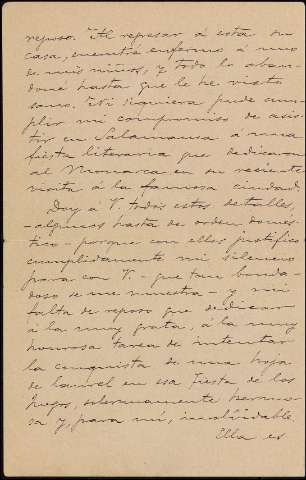 reposo. Al regresar á esta su
casa, encontré enfermo á uno
de mis niños, y todo lo aban-
doné hasta que le he visto
sano. Ni siquiera pude cum-
plir mi compromiso de asis-
tir en Salamanca á una
fiesta literaria que dedicaron
al Monarca en su reciente
visita á la famosa ciudad.
Doy á V. todos estos detalles,
-algunos hasta de orden domés-
tico- porque con ellos justifico
cumplidamente mi silencio
para con V. - que tan bonda-
doso se me muestra - y mi
falta de reposo que dedicar
á la muy grata, á la muy
honrosa tarea de intentar
la conquista de una hoja
de laurel en esa Fiesta de los
Juegos, soberanamente hermo-
sa y, para mí, inolvidable.
Ella es